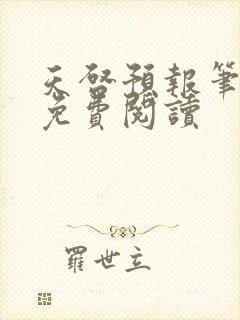 天啓預報筆
免費閱讀
羅世立